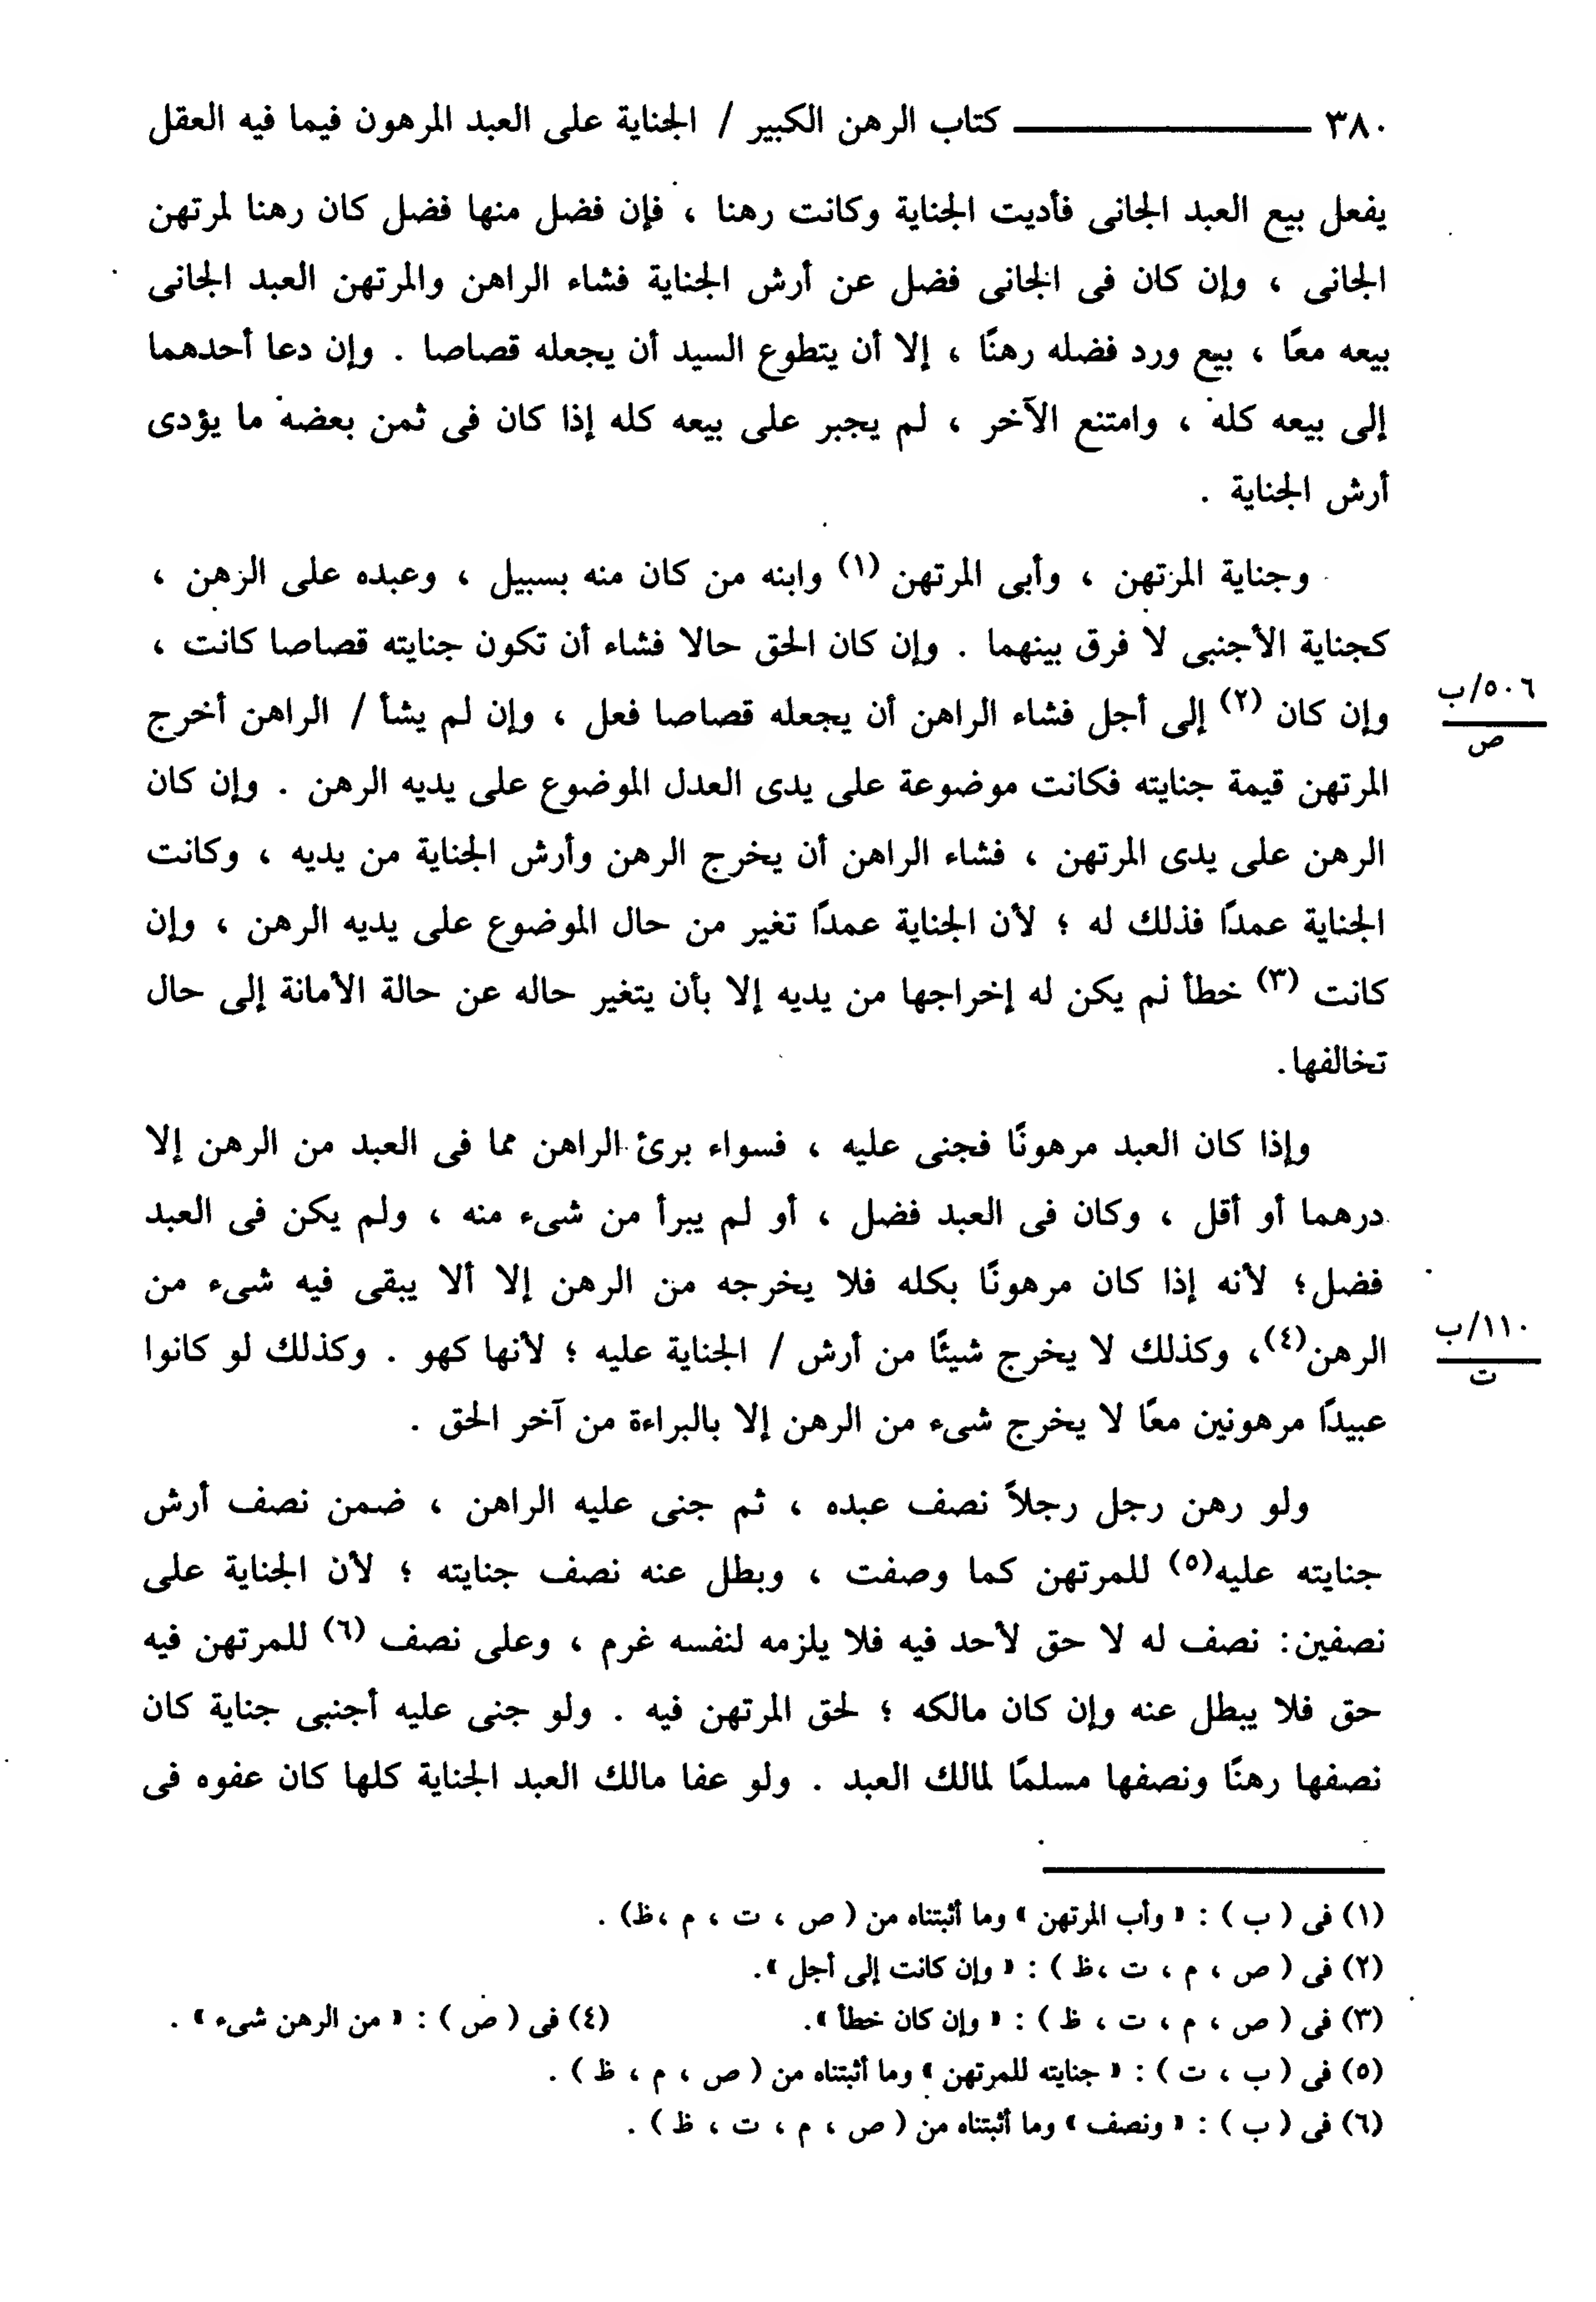 ٣٨٠ ــــــــــــــــ كتاب الرهن الكبير / الجناية على العبد المرهون فيما فيه العقل
يفعل بيع العبد الجانى فأديت الجناية وكانت رهنا ، فإن فضل منها فضل كان رهنا لمرتهن
الجانى ، وإن كان فى الجانى فضل عن أرش الجناية فشاء الراهن والمرتهن العبد الجانى
بيعه معًا ، بيع ورد فضله رهنًا ، إلا أن يتطوع السيد أن يجعله قصاصا . وإن دعا أحدهما
إلى بيعه كله ، وامتنع الآخر ، لم يجبر على بيعه كله إذا كان فى ثمن بعضه ما يؤدى
أرش الجناية .
وجناية المرتهن ، وأبى المرتهن (١) وابنه من كان منه بسبيل ، وعبده على الرهن ،
كجناية الأجنبى لا فرق بينهما . وإن كان الحق حالا فشاء أن تكون جنايته قصاصا كانت ،
وإن كان (٢) إلى أجل فشاء الراهن أن يجعله قصاصا فعل ، وإن لم يشأ / الراهن أخرج
٥٠٦/ب
ص
المرتهن قيمة جنايته فكانت موضوعة على يدى العدل الموضوع على يديه الرهن . وإن كان
الرهن على يدى المرتهن ، فشاء الراهن أن يخرج الرهن وأرش الجناية من يديه ، وكانت
الجناية عمدًا فذلك له ؛ لأن الجناية عمدًا تغير من حال الموضوع على يديه الرهن ، وإن
كانت (٣) خطأ لم يكن له إخراجها من يديه إلا بأن يتغير حاله عن حالة الأمانة إلى حال
تخالفها.
وإذا كان العبد مرهونًا فجنى عليه ، فسواء برئ الراهن مما فى العبد من الرهن إلا
درهما أو أقل ، وكان فى العبد فضل ، أو لم يبرأ من شىء منه ، ولم يكن فى العبد
فضل؛ لأنه إذا كان مرهونًا بكله فلا يخرجه من الرهن إلا ألا يبقى فيه شىء من
الرهن(٤)، وكذلك لا يخرج شيئًا من أرش / الجناية عليه ؛ لأنها كهو . وكذلك لو كانوا
١١٠/ب
ت
عبيدًا مرهونين معًا لا يخرج شىء من الرهن إلا بالبراءة من آخر الحق .
ولو رهن رجل رجلاً نصف عبده ، ثم جنى عليه الراهن ، ضمن نصف أرش
جنايته عليه(٥) للمرتهن كما وصفت ، وبطل عنه نصف جنايته ؛ لأن الجناية على
نصفين: نصف له لا حق لأحد فيه فلا يلزمه لنفسه غرم ، وعلى نصف (٦) للمرتهن فيه
حق فلا يبطل عنه وإن كان مالكه ؛ لحق المرتهن فيه . ولو جنى عليه أجنبى جناية كان
نصفها رهنًا ونصفها مسلمًا لمالك العبد . ولو عفا مالك العبد الجناية كلها كان عفوه فى
(١) فى ( ب ) : « وأب المرتهن » وما أثبتناه من ( ص ، ت ، م ،ظ) .
(٢) فى ( ص ، م ، ت ،ظ ) : « وإن كانت إلى أجل ».
(٣) فى ( ص ، م ، ت ، ظ ) : « وإن كان خطأ ». (٤) فى ( ص ) : « من الرهن شىء » .
(٥) فى ( ب ، ت ) : « جنايته للمرتهن » وما أثبتناه من ( ص ، م ، ظ ) .
(٦) فى ( ب ) : « ونصف » وما أثبتناه من ( ص ، م ، ت ، ظ ) .